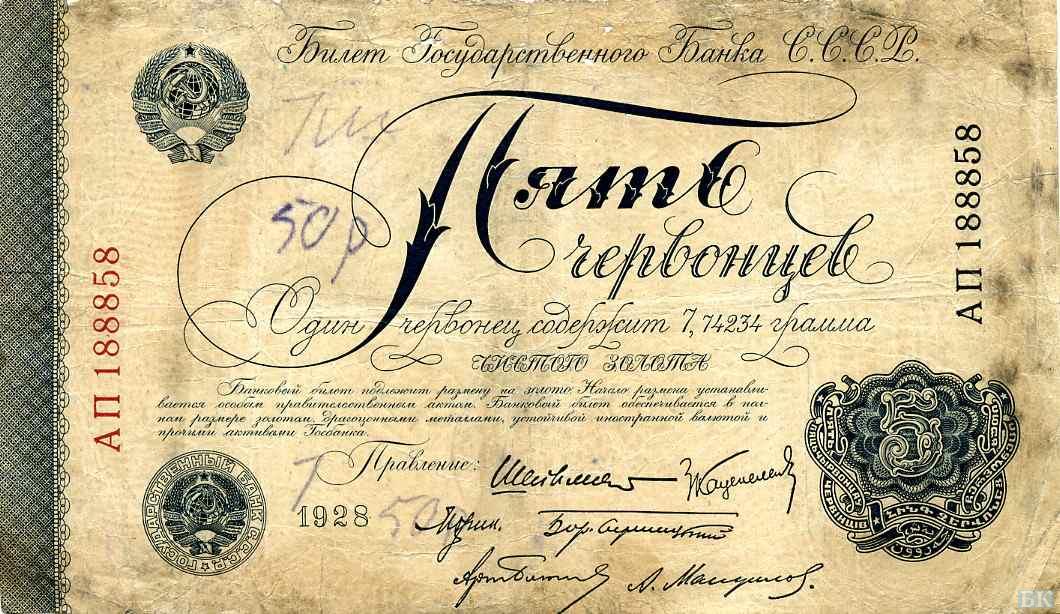 Билет Государственного Банка С.С.С.Р.
Пять
червонцев
50р
Один червонец содержит 7,74234 грамма
чистого золота
Банковый билет подлежит размену на золото. Начало размена устанавли-
вается особым правительственным актом. Банковый билет обеспечивается в пол-
ном размере золотом, драгоценными металлами, устойчивой иностранной валютой и
прочими активами Госбанка.
Правление:
1928
50
АП 188858
АП 188858
ГОСУДАРСТВЕННЫЙ БАНК С.С.С.Р.
5
БК